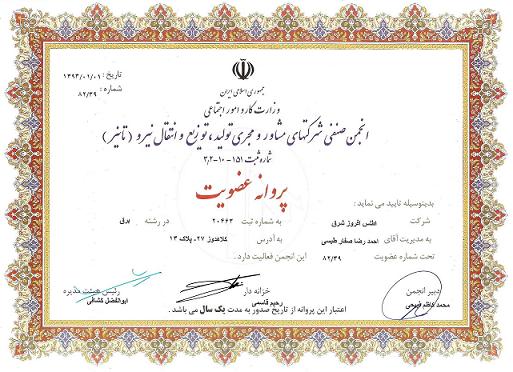 تاریخ : ۱۳۹۳/۰۱/۰۱
شماره : ۸۲/۳۹
جمهوری اسلامی ایران
وزارت کار و امور اجتماعی
انجمن صنفی شرکتهای مشاور و مجری تولید ، توزیع و انتقال نیرو ( تانیر )
شماره ثبت ۱۵۱ - ۱۰ - ۳٫۲
پروانه عضویت
بدینوسیله تایید می نماید :
شرکت اطلس افروز شرق به شماره ثبت ۲۰۶۶۳ در رشته برق
به مدیریت آقای احمد رضا صفار طبسی به آدرس کلاهدوز ۲۷- پلاک ۱۳
تحت شماره عضویت ۸۲/۳۹ این انجمن فعالیت دارد .
دبیر انجمن خزانه دار رئیس هیئت مدیره
محمد کاظم رحیم قاسمی ابوالفضل کشافی
اعتبار این پروانه از تاریخ صدور به مدت یک سال می باشد .